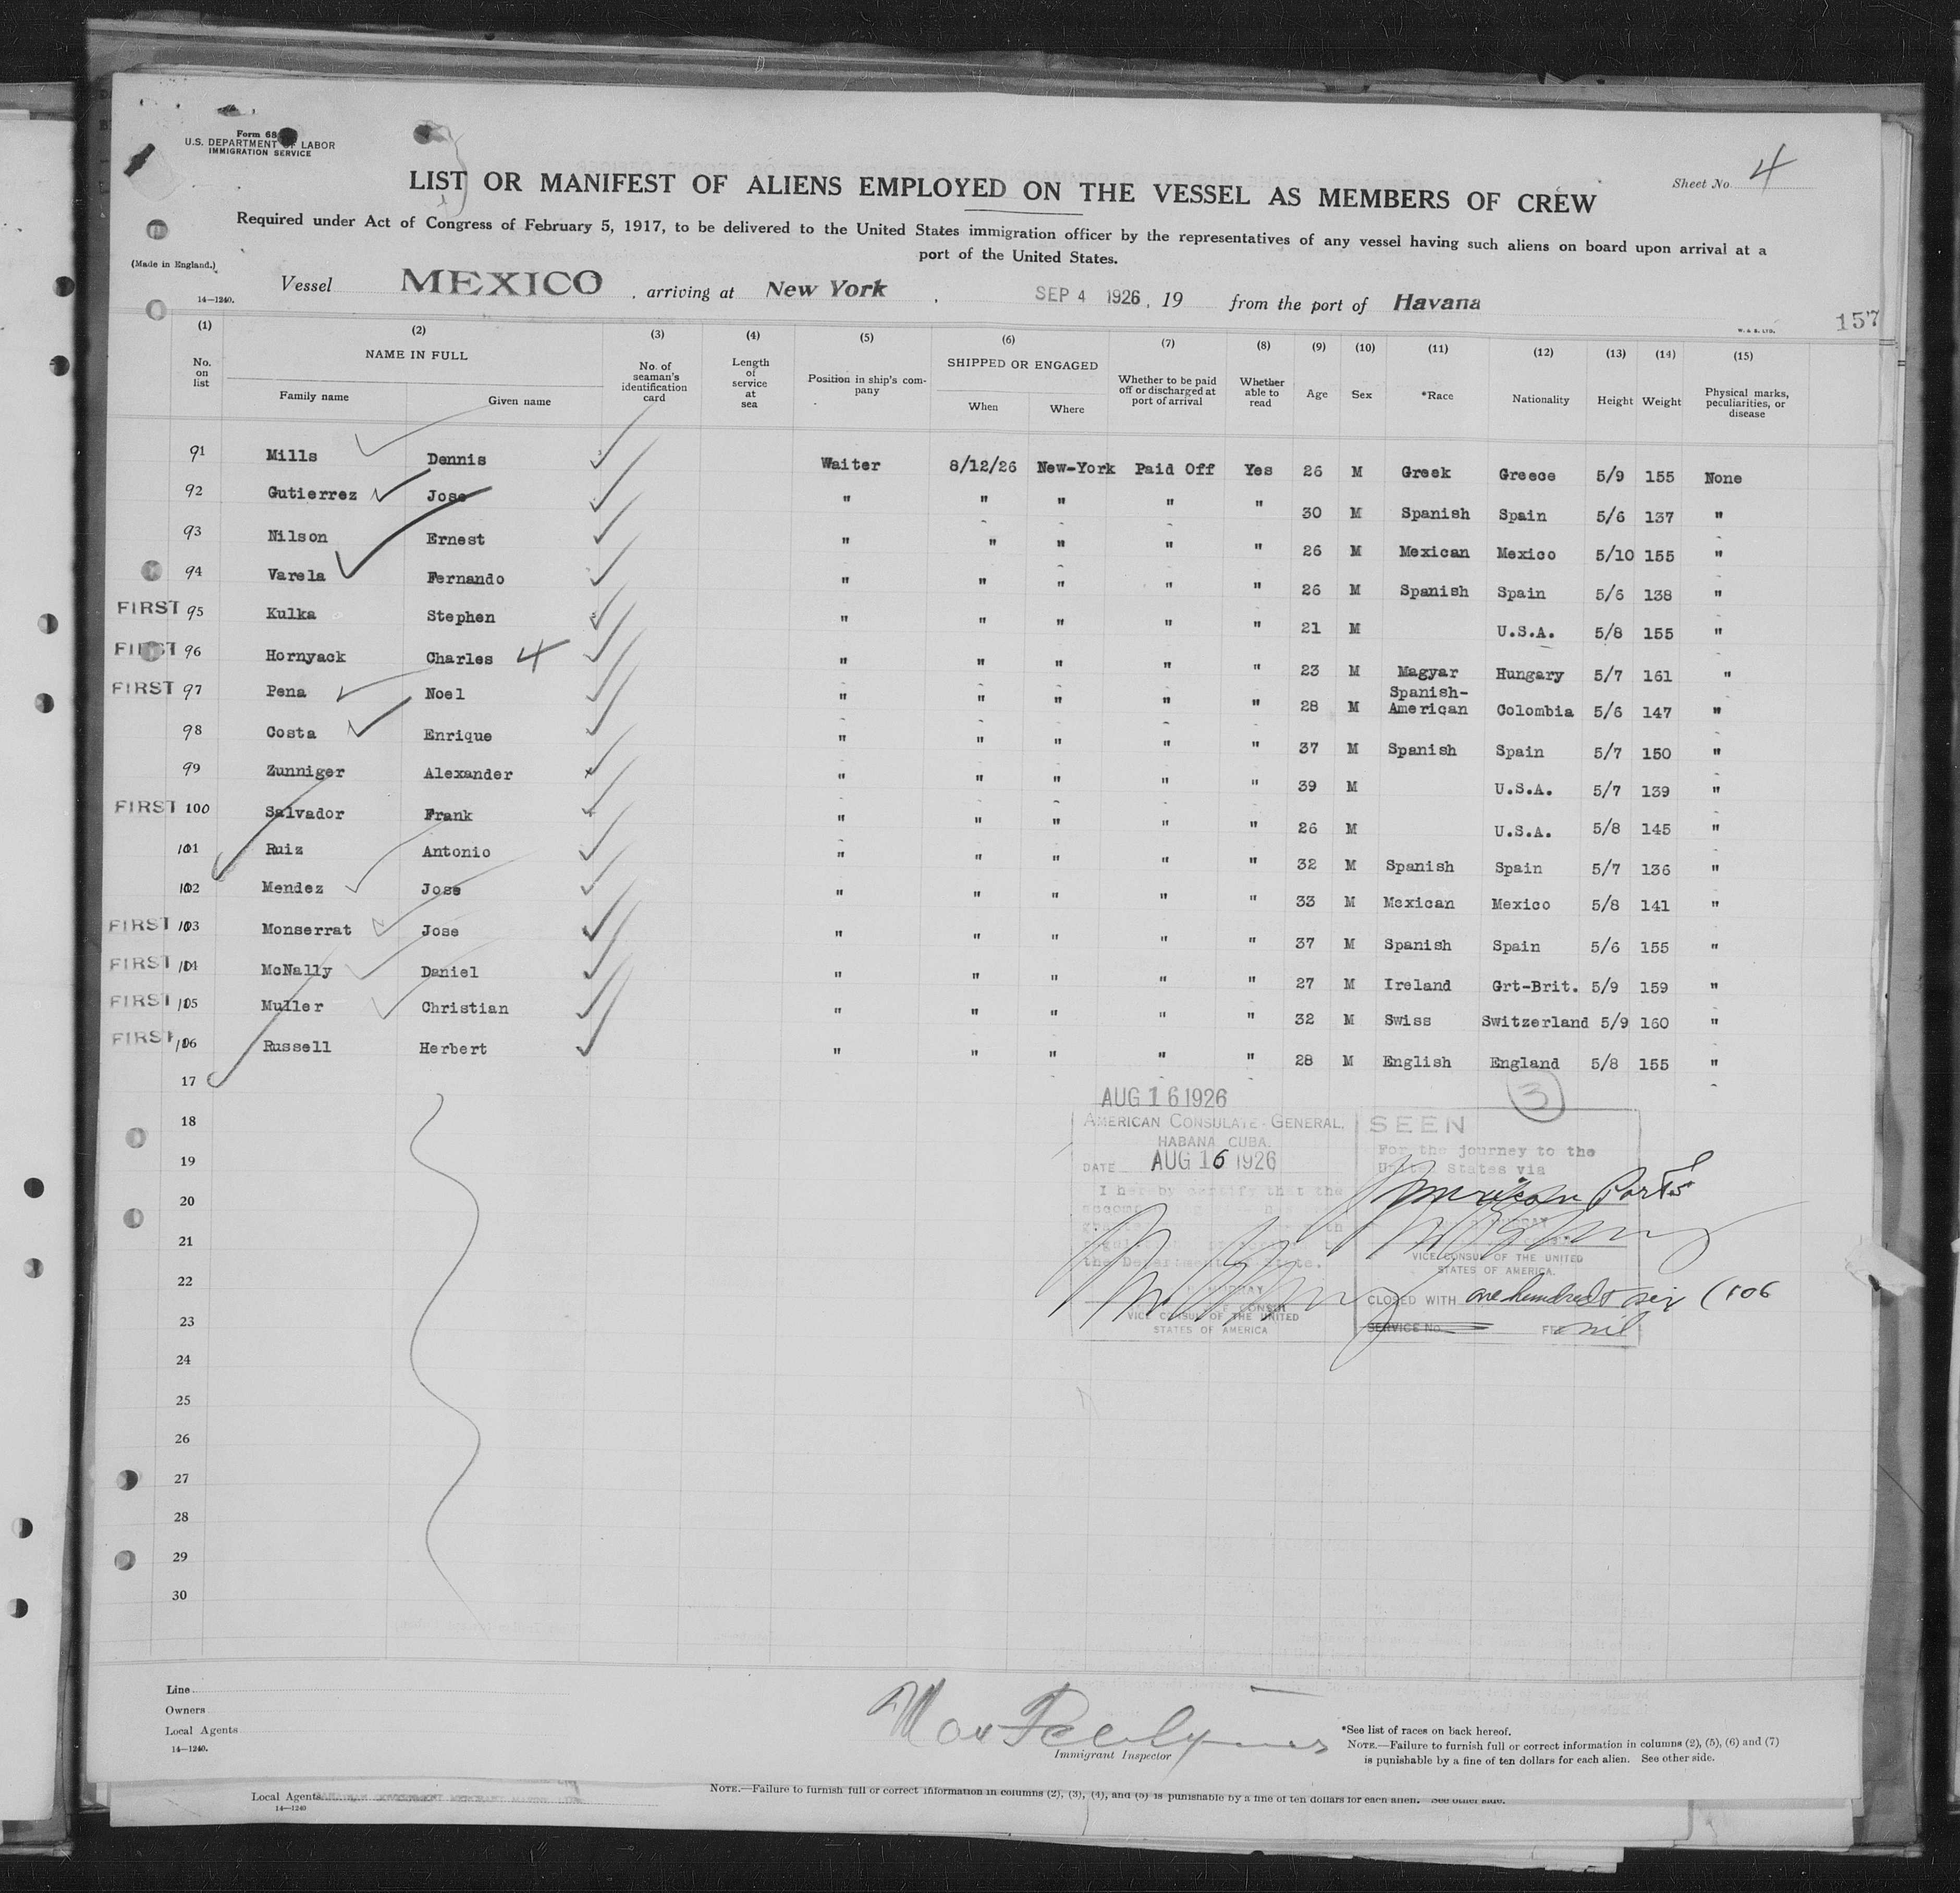 Form 68
U.S. DEPARTMENT OF LABOR
IMMIGRATION SERVICE
Sheet No. 4
LIST OR MANIFEST OF ALIENS EMPLOYED ON THE VESSEL AS MEMBERS OF CREW
Required under Act of Congress of February 5, 1917, to be delivered to the United States immigration officer by the representatives of any vessel having such aliens on board upon arrival at a
port of the United States.
(Made in England.)
14—1240.
Vessel MEXICO, arriving at New York, SEP 4 1926, 19 from the port of Havana
W. & S. LTD.
157
(1) (2) (3) (4) (5) (6) (7) (8) (9) (10) (11) (12) (13) (14) (15)
No. on list NAME IN FULL Family name Given name No. of seaman's identification card Length of service at sea Position in ship's company SHIPPED OR ENGAGED When Where Whether to be paid off or discharged at port of arrival Whether able to read Age Sex *Race Nationality Height Weight Physical marks, peculiarities, or disease
91 Mills Dennis Waiter 8/12/26 New-York Paid Off Yes 26 M Greek Greece 5/9 155 None
92 Gutierrez Jose " " " " " 30 M Spanish Spain 5/6 137 "
93 Nilson Ernest " " " " " 26 M Mexican Mexico 5/10 155 "
94 Varela Fernando " " " " " 26 M Spanish Spain 5/6 138 "
FIRST 95 Kulka Stephen " " " " " 21 M U.S.A. 5/8 155 "
FIRST 96 Hornyack Charles 4 " " " " " 23 M Magyar Hungary 5/7 161 "
FIRST 97 Pena Noel " " " " " 28 M Spanish-American Colombia 5/6 147 "
98 Costa Enrique " " " " " 37 M Spanish Spain 5/7 150 "
99 Zunniger Alexander " " " " " 39 M U.S.A. 5/7 139 "
FIRST 100 Salvador Frank " " " " " 26 M U.S.A. 5/8 145 "
101 Ruiz Antonio " " " " " 32 M Spanish Spain 5/7 136 "
102 Mendez Jose " " " " " 33 M Mexican Mexico 5/8 141 "
FIRST 103 Monserrat Jose " " " " " 37 M Spanish Spain 5/6 155 "
FIRST 104 McNally Daniel " " " " " 27 M Ireland Grt-Brit. 5/9 159 "
FIRST 105 Muller Christian " " " " " 32 M Swiss Switzerland 5/9 160 "
FIRST 106 Russell Herbert " " " " " 28 M English England 5/8 155 "
17
18
19
20
21
22
23
24
25
26
27
28
29
30
AUG 16 1926
AMERICAN CONSULATE-GENERAL,
HABANA, CUBA.
DATE AUG 16 1926
I hereby certify that the
the Department of State.
VICE CONSUL OF THE UNITED
STATES OF AMERICA
3
SEEN
For the journey to the
United States via
American Ports
VICE CONSUL OF THE UNITED
STATES OF AMERICA.
CLOSED WITH one hundred six (106
SERVICE No. nil
Line
Owners
Local Agents
14—1240.
Immigrant Inspector
*See list of races on back hereof.
NOTE.—Failure to furnish full or correct information in columns (2), (5), (6) and (7)
is punishable by a fine of ten dollars for each alien. See other side.
Local Agents
14—1240
NOTE.—Failure to furnish full or correct information in columns (2), (3), (4), and (5) is punishable by a fine of ten dollars for each alien. See other side.